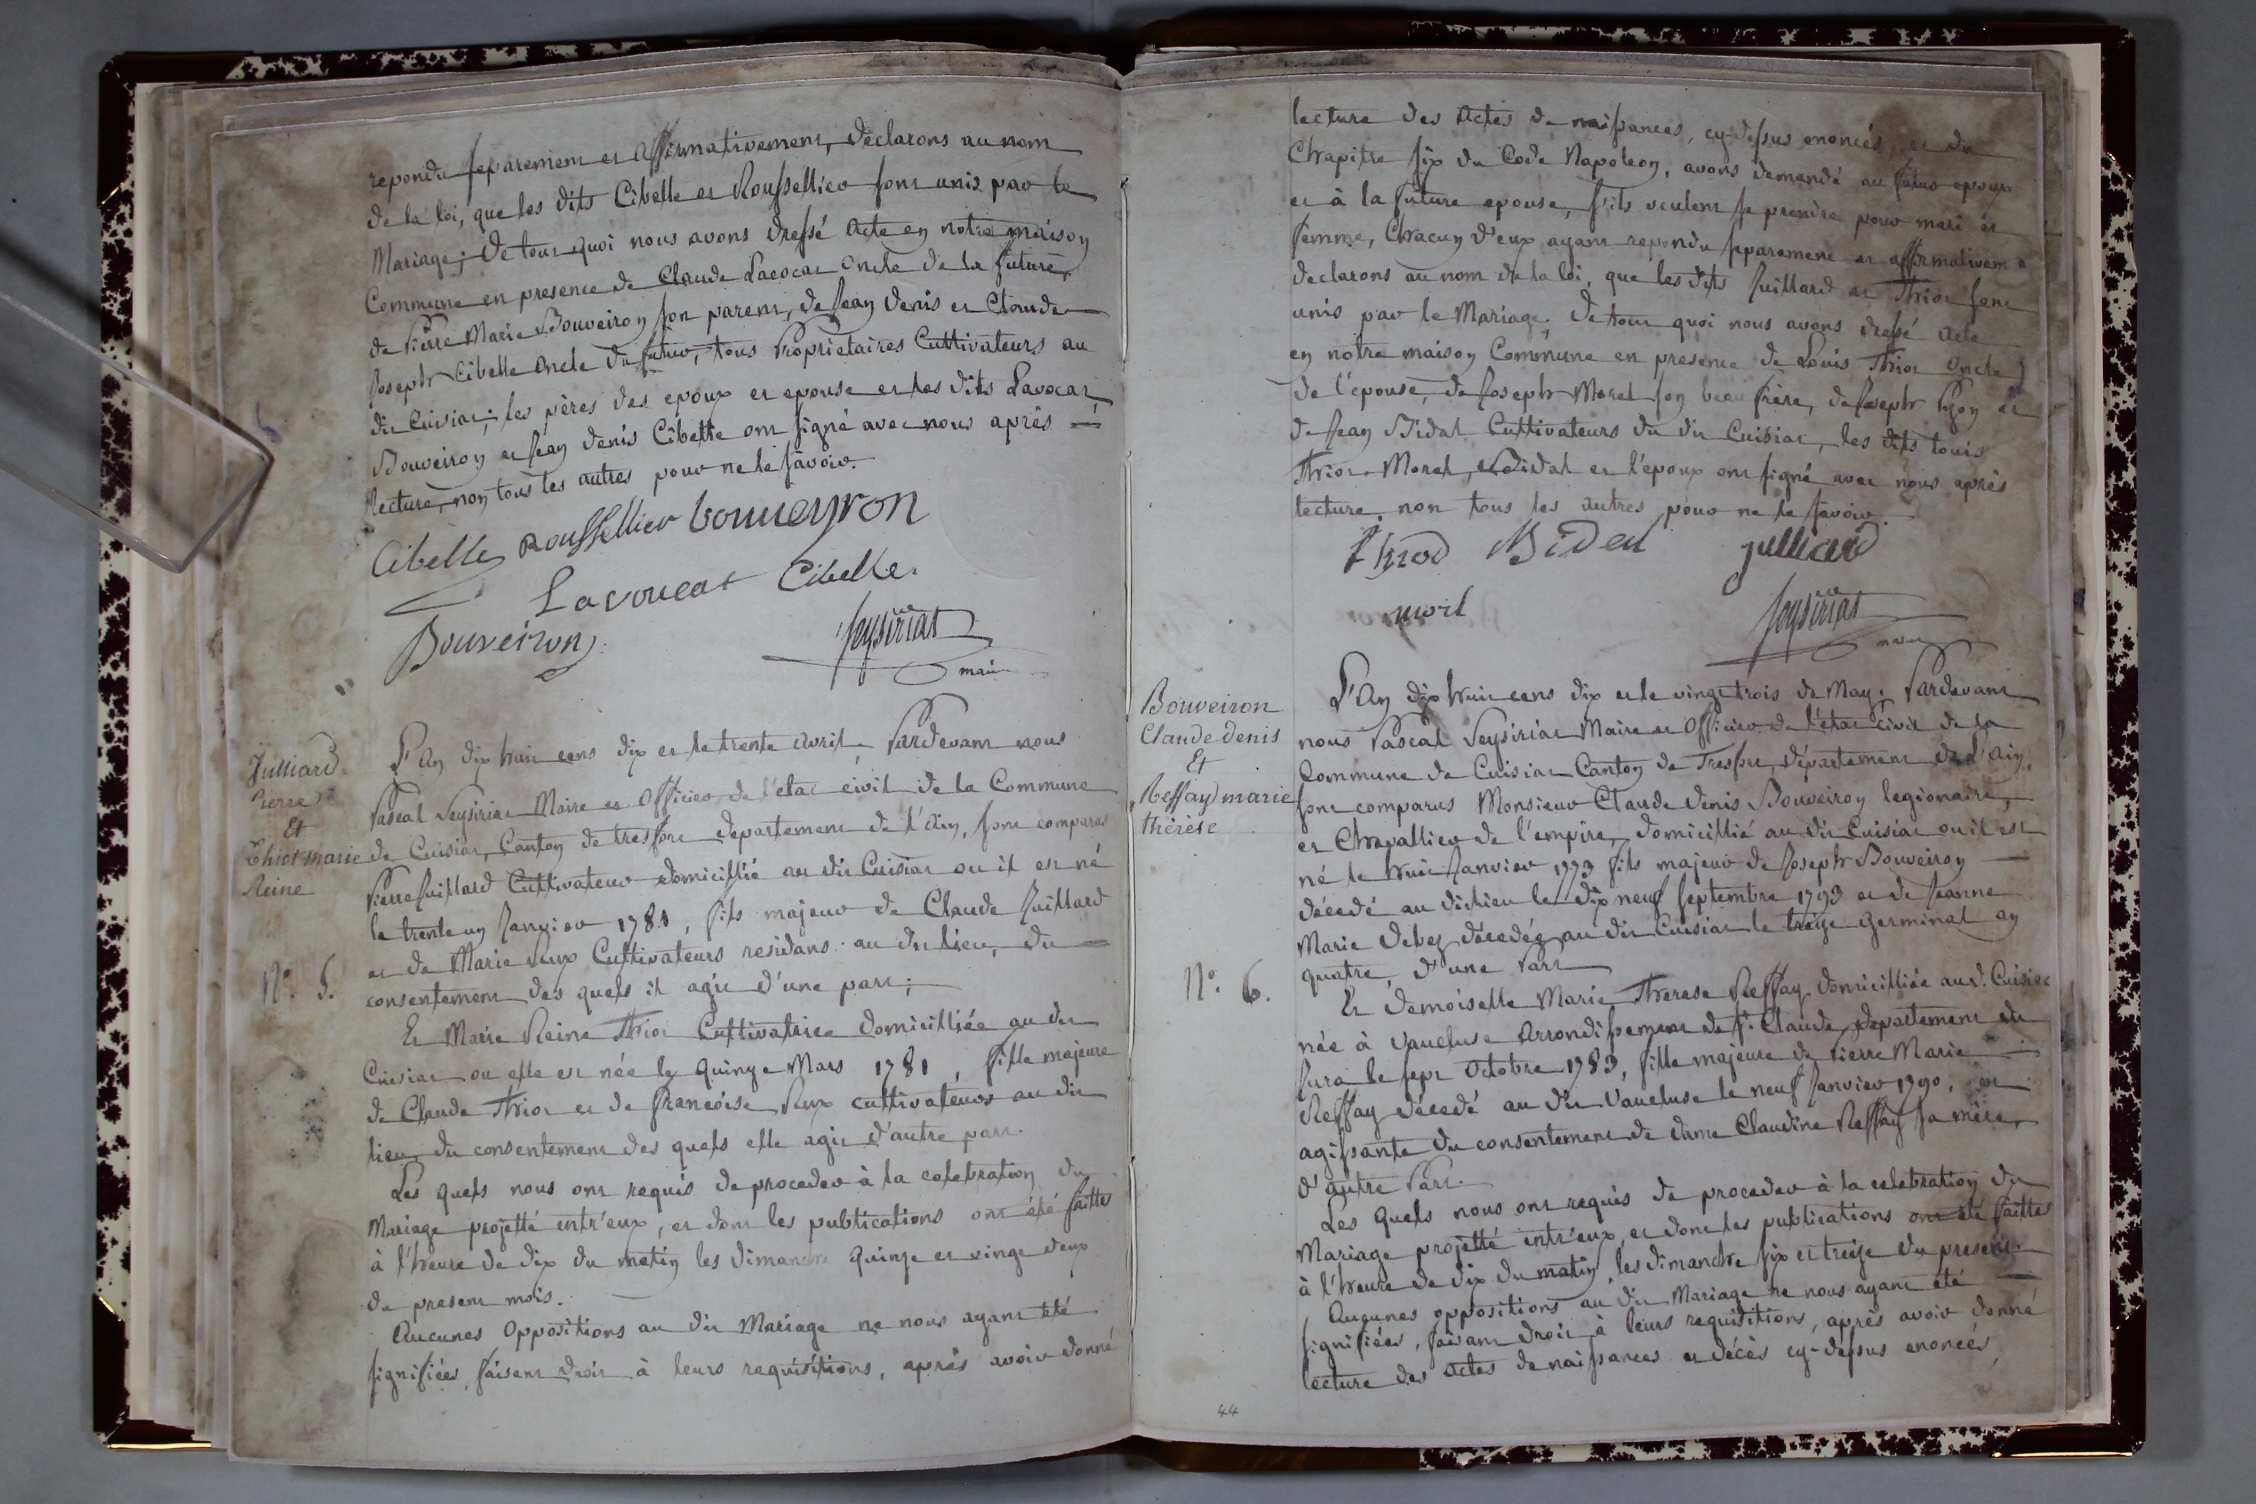 repondu separement et affirmativement, declarons au nom
de la loi, que les dits Cibelle et Roussellier sont unis par le
Mariage; De tout quoi nous avons dressé acte en notre maison
Commune en presence de Claude Lacocat oncle de la future,
de Pierre Marie Bouveiron son parent, de Jean Denis et Claude
Joseph Cibelle oncle du futur, tous Proprietaires Cultivateurs au
dit Cuisiat; les pères des epoux et epouse et les dits Lavocat
Bouveiron et Jean Denis Cibelle ont signé avec nous après
lecture, non tous les autres pour ne le savoir.
Cibelle Roussellier bouveyron
Lavoucat Cibelle
Bouveiron
Peysiriat
maire
Julliard
Pierre
Et
Thiot marie
Reine
N.º 5.
L'An dix huit cens dix et le trente avril, Pardevant nous
Pascal Peysiriat Maire et Officier de l'état civil de la Commune
de Cuisiat, Canton de tresfort departement de l'Ain, sont comparus
Pierre Juillard Cultivateur domicillié au dit Cuisiat ou il est né
le trente un Janvier 1781, fils majeur de Claude Juillard
et de Marie Pux Cultivateurs residans au du lieu, du
consentement des quels il agit d'une part;
Et Marie Reine Thiot Cultivatrice domicilliée au dit
Cuisiat ou elle est née le quinze Mars 1781, fille majeure
de Claude Thiot et de francoise Pux cultivateurs au dit
lieu du consentement des quels elle agit d'autre part.
Les quels nous ont requis de proceder à la celebration du
Mariage projetté entr'eux, et dont les publications ont été faittes
à l'heure de dix du matin les dimanche quinze et vingt deux
du present mois.
Aucunes Oppositions au dit Mariage ne nous ayant été
signifiées, faisant droit à leurs requisitions, après avoir donné
lecture des Actes de naissances, cy-dessus enoncés, et du
Chapitre six du Code Napoleon, avons demandé au futur epoux
et à la future epouse, s'ils veulent se prendre pour mari et
femme, Chacun d'eux ayant repondu separement et affirmativemt
declarons au nom de la loi, que les dits Juillard et Thiot sont
unis par le Mariage. De tout quoi nous avons dressé acte
en notre maison Commune en presence de Louis Thiot oncle
de l'épouse, de Joseph Morel son beau frère, de Joseph Pyon et
de Jean Bidal Cultivateurs du dit Cuisiat, les dits Louis
Thiot Morel, et Bidal et l'époux ont signé avec nous après
lecture, non tous les autres pour ne le savoir.
Thiod Bidal julliard
morl
Peysiriat
maire
Bouveiron
Claude denis
Et
Reffay marie
thérèse
N.º 6.
L'An dix huit cens dix et le vingt trois de May; Pardevant
nous Pascal Peysiriat Maire et Officier de l'état civil de la
Commune de Cuisiat Canton de Tresfort, département de l'Ain,
sont comparus Monsieur Claude Denis Bouveiron legionaire,
et Chevallier de l'empire, domicillié au dit Cuisiat ou il est
né le huit Janvier 1773 fils majeur de Joseph Bouveiron
décedé au dit lieu le dix neuf septembre 1793 et de Jeanne
Marie Debez décedée au dit Cuisiat le treize Germinal an
quatre, d'une Part
Et demoiselle Marie Therese Reffay domicilliée au d. Cuisiat
née à Vaucluse Arrondissement de St. Claude, departement du
Jura le sept Octobre 1783, fille majeure de Pierre Marie
Reffay décedé au dit Vaucluse le neuf Janvier 1790, et
agissante du consentement de dame Claudine Reffay sa mère,
d'autre Part.
Les quels nous ont requis de proceder à la celebration du
Mariage projetté entr'eux, et dont les publications ont été faittes
à l'heure de dix du matin, les dimanche six et treize du present.
Aucunes oppositions au dit Mariage ne nous ayant été
signifiées, faisant droit à leurs requisitions, après avoir donné
lecture des actes de naissances et décès cy-dessus enoncés,
44